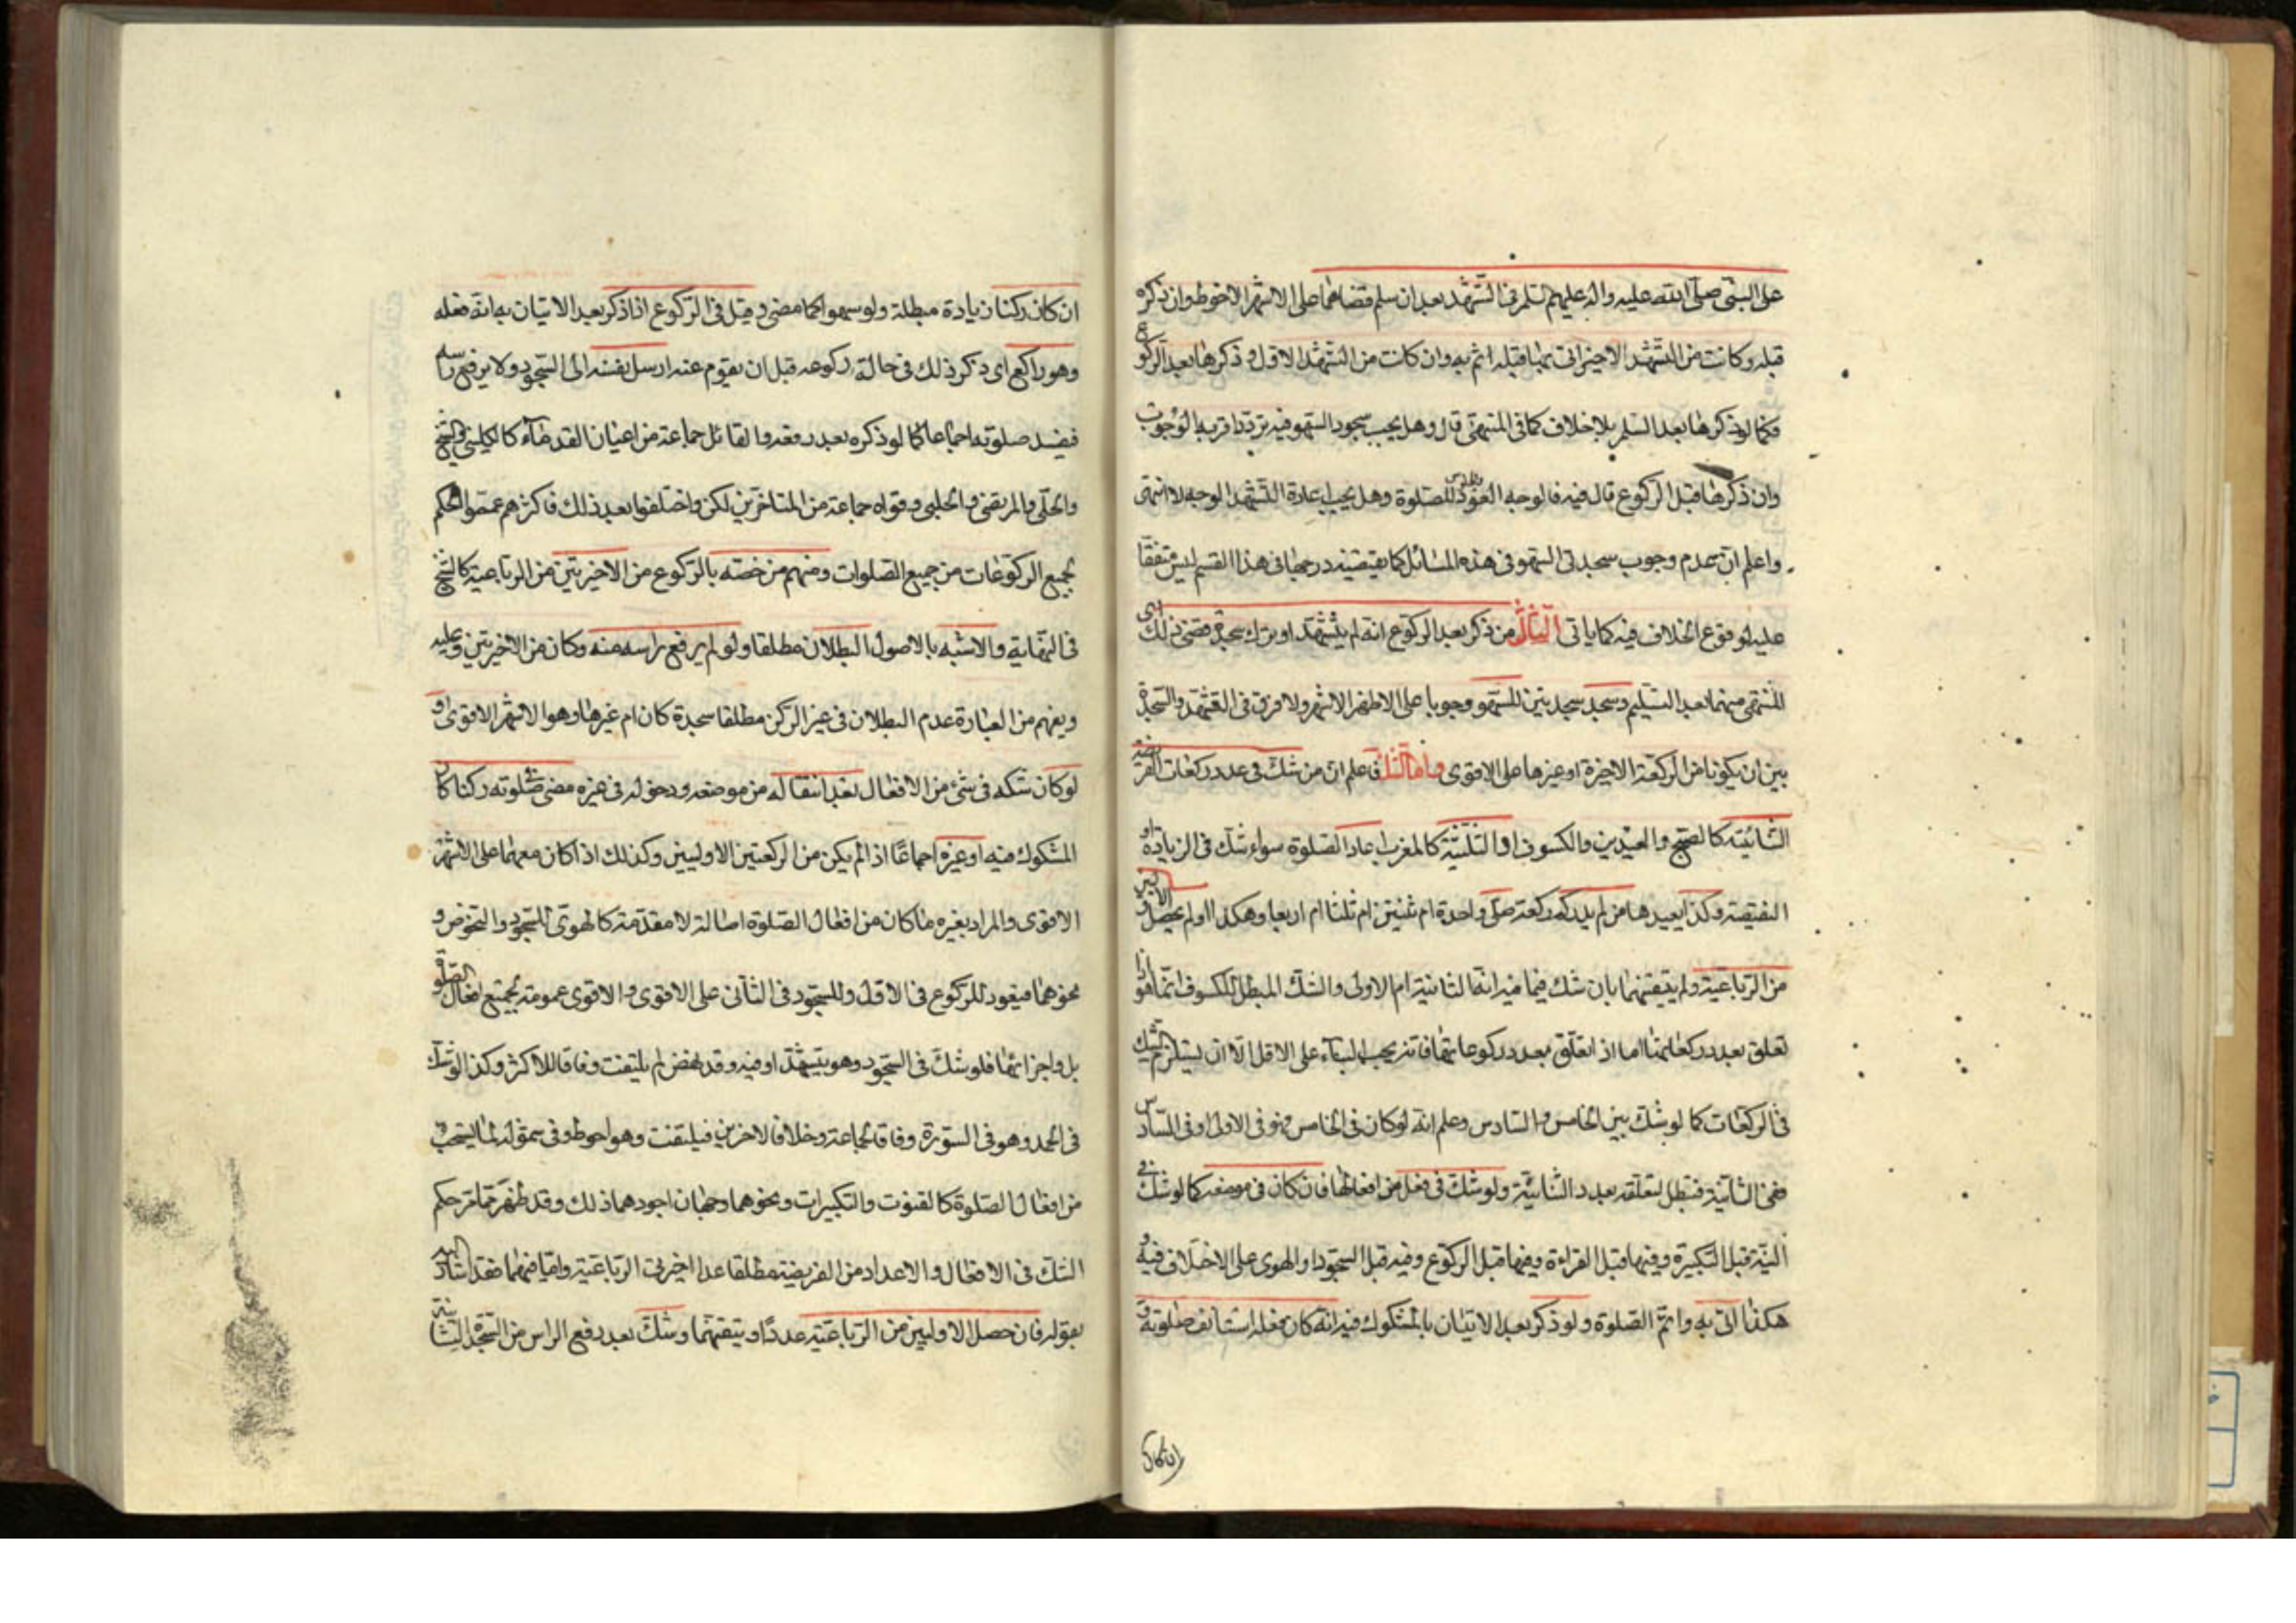 على النبي صلى الله عليه واله عليهم السلام في التشهد بعد ان سلم قضاهما على الاشهر الاحوط وان ذكره
قبله وكانت من التشهد الاخير اتى بما قبله اثم به وان كانت من التشهد الاول وذكرها بعد الركوع
فكما لو ذكرها بعد السلم بلا خلاف كما في المنتهى قال وهل يجب سجود السهو فيه تردد اقربه الوجوب
وان ذكرها قبل الركوع قال فيه فالوجه العود للصلوة وهل يجب اعادة التشهد الوجه لا انتهى
واعلم ان عدم وجوب سجدتي السهو في هذه المسائل كما يقتضيه درجها في هذا القسم ليس متفقا
عليه لوقوع الخلاف فيه كما ياتي الثالث من ذكر بعد الركوع انه لم يتشهد او ترك سجدة قضى ذلك
المنسي منهما بعد التسليم وسجد سجدتين للسهو وجوبا على الاظهر الاشهر ولا فرق في التشهد والسجدة
بين ان يكونا من الركعة الاخيرة او غيرها على الاقوى واما الشك فاعلم ان من شك في عدد ركعات الفريضة
الثنائية كالصبح والعيدين والكسوف او الثلثية كالمغرب اعاد الصلوة سواء شك في الزيادة او
النقيصة وكذا يعيدها من لم يدر كم ركعة صلى واحدة ام ثنتين ام ثلثا ام اربعا وهكذا او لم يحصل الاوليين
من الرباعية ولم يتيقنهما بان شك فيما فيه انها الثانية ام الاولى والشك المبطل للكسوف انما هو اذا
تعلق بعدد ركعاتها اما اذا تعلق بعدد ركوعاتها فانه يجب البناء على الاقل الا ان يستلزم الشك
في الركعات كما لو شك بين الخامس والسادس وعلم انه لو كان في الخامس فهو في الاولى او في السادس
ففي الثانية فتبطل لتعلقه بعدد الثنائية ولو شك في فعل من افعالها فان كان في موضعه كما لو شك في
النية قبل التكبيرة وفيها قبل القراءة وفيها قبل الركوع وفيه قبل السجود او الهوى على الاختلاف فيه و
هكذا اتى به واتم الصلوة ولو ذكر بعد الاتيان بالمشكوك فيه انه كان فعله استانف صلوته و
ان كان
ان كان ركنا زيادة مبطلة ولو سهوا كما مضى وقيل في الركوع اذا ذكر بعد الاتيان به انه فعله
وهو راكع اى ذكر ذلك في حالة ركوعه قبل ان يقوم عنه ارسل نفسه الى السجود ولا يرفع راسه
فيفسد صلوته اجماعا كما لو ذكره بعد رفعه والقائل جماعة من اعيان القدماء كالكليني والشيخ
والحلي والمرتضى والحلبي وقواه جماعة من المتاخرين لكن واختلفوا بعد ذلك فاكثرهم عمموا الحكم
لجميع الركوعات من جميع الصلوات ومنهم من خصه بالركوع من الاخيرتين من الرباعية كالشيخ
في النهاية والاشبه بالاصول البطلان مطلقا ولو لم يرفع راسه منه وكان من الاخيرتين وعليه
ويفهم من العبارة عدم البطلان في غير الركن مطلقا سجدة كان ام غيرها وهو الاشهر الاقوى و
لو كان شكه في شئ من الافعال بعد انتقاله من موضعه ودخوله في غيره مضى في صلوته ركنا كان
المشكوك فيه او غيره اجماعا اذا لم يكن من الركعتين الاوليين وكذلك اذا كان معهما على الاشهر
الاقوى والمراد بغيره ما كان من افعال الصلوة اصالة لا مقدمة كالهوى للسجود والنهوض و
نحوهما فيعود للركوع في الاول وللسجود في الثاني على الاقوى والاقوى عمومه لجميع افعال الصلوة
بل واجزائها فلو شك في السجود وهو يتشهد او فيه وقد نهض لم يلتفت وفاقا للاكثر وكذا لو شك
في الحمد وهو في السورة وفاقا لجماعة وخلافا لاخرين فيلتفت وهو احوط وفي شموله لما يستحب
من افعال الصلوة كالقنوت والتكبيرات ونحوهما وجهان اجودهما ذلك وقد ظهر مما مر حكم
الشك في الافعال والاعداد من الفريضة مطلقا عدا اخيرتي الرباعية واما فيهما فقد اشار اليه
بقوله فان حصل الاوليين من الرباعية عددا وتيقنهما وشك بعد رفع الراس من السجدة الثانية